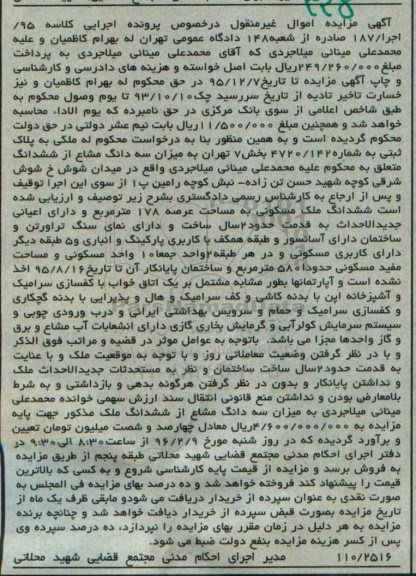 آگهی مزایده اموال غیرمنقول درخصوص پرونده اجرایی کلاسه ۹۵/
اجرا/۱۸۷ صادره از شعبه۱۴۸ دادگاه عمومی تهران له بهرام کاظمیان و علیه
محمدعلی مینائی میلاجردی که آقای محمدعلی مینائی میلاجردی به پرداخت
مبلغ۲۴۹/۲۶۰/۰۰۰ریال بابت اصل خواسته و هزینه های دادرسی و کارشناسی
و چاپ آگهی مزایده تا تاریخ۹۵/۱۲/۷ در حق محکوم له بهرام کاظمیان و نیز
خسارت تاخیر تادیه از تاریخ سررسید چک۹۳/۱۰/۱۰ تا یوم وصول محکوم به
طبق شاخص اعلامی از سوی بانک مرکزی در حق نامبرده که یوم الادا، محاسبه
خواهد شد و همچنین مبلغ ۱۱/۵۰۰/۰۰۰ریال بابت نیم عشر دولتی در حق دولت
محکوم گردیده است و به همین منظور بنا به درخواست محکوم له ملکی به پلاک
ثبتی به شماره۴۷۲۰/۱۴۲ بخش۷ تهران به میزان سه دانگ مشاع از ششدانگ
متعلق به محکوم علیه محمدعلی مینائی میلاجردی واقع در میدان شوش خ شوش
شرقی کوچه شهید حسن تن زاده– نبش کوچه رامین پ۱ از سوی این اجرا توقیف
و پس از ارجاع به کارشناس رسمی دادگستری بشرح زیر توصیف و ارزیابی شده
است ششدانگ ملک مسکونی به مساحت عرصه ۱۷۸ مترمربع و دارای اعیانی
جدیدالاحداث به قدمت حدود۲سال ساخت و دارای نمای سنگ تراورتن و
ساختمان دارای آسانسور و طبقه همکف با کاربری پارکینگ و انباری و۵ طبقه دیگر
دارای کاربری مسکونی و در هر طبقه۲واحد جمعا۱۰ واحد مسکونی و مساحت
مفید مسکونی حدودا۵۸۰ مترمربع و ساختمان پایانکار آن تا تاریخ۹۵/۸/۱۶ اخذ
نشده است و آپارتمانها بطور مشابه مشتمل بر یک اتاق خواب با کفسازی سرامیک
و آشپزخانه اپن با بدنه کاشی و کف سرامیک و هال و پذیرایی با بدنه گچکاری
و کفسازی سرامیک و حمام و سرویس بهداشتی ایرانی و درب ورودی چوبی و
سیستم سرمایش کولرآبی و گرمایش بخاری گازی دارای انشعابات آب مشاع و برق
و گاز واحدها مجزا می باشد. باتوجه به عوامل موثر در قضیه و مراتب فوق الذکر
و با در نظر گرفتن وضعیت معاملاتی روز و با توجه به موقعیت ملک و با عنایت
به قدمت حدود۲سال ساخت ساختمان و نظر به مستحدثات جدیدالاحداث ملک
و نداشتن پایانکار و بدون در نظر گرفتن هرگونه بدهی و بازداشتی و به شرط
بلامعارض بودن و نداشتن منع قانونی انتقال سند ارزش سهمی خوانده محمدعلی
مینائی میلاجردی به میزان سه دانگ مشاع از ششدانگ ملک مذکور جهت پایه
مزایده به ۴/۶۰۰/۰۰۰/۰۰۰ریال معادل چهارصد و شصت میلیون تومان تعیین
و برآورد گردیده که در روز شنبه مورخ ۹۶/۲/۹ از ساعت۸:۳۰ الی۹:۳۰ در
دفتر اجرای احکام مدنی مجتمع قضایی شهید محلاتی طبقه پنجم از طریق مزایده
به فروش برسد و مزایده از قیمت پایه کارشناسی شروع و به کسی که بالاترین
قیمت را پیشنهاد کند فروخته خواهد شد و ده درصد بهای مزایده فی المجلس به
صورت نقدی به عنوان سپرده از خریدار دریافت می شودو مابقی ظرف یک ماه از
تاریخ مزایده بصورت قبض سپرده از خریدار دریافت خواهد شد و چنانچه برنده
مزایده به هر دلیل در زمان مقرر بهای مزایده را نپردازد، ده درصد سپرده وی
پس از کسر هزینه مزایده بنفع دولت ضبط می شود.
۱۱۰/۲۵۱۶ مدیر اجرای احکام مدنی مجتمع قضایی شهید محلاتی